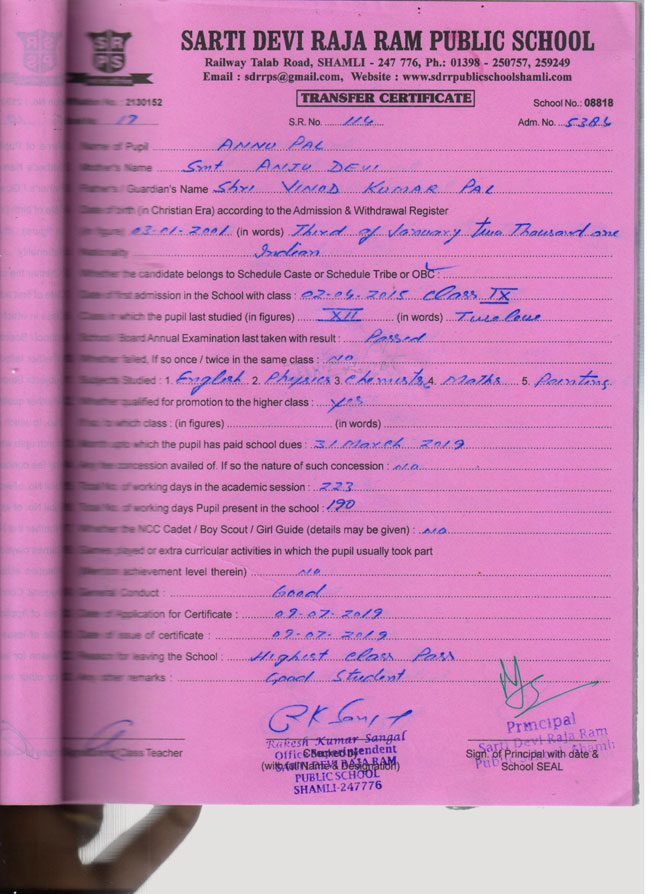 SRPS
SARTI DEVI RAJA RAM PUBLIC SCHOOL
Railway Talab Road, SHAMLI - 247 776, Ph.: 01398 - 250757, 259249
Email : sdrrps@gmail.com, Website : www.sdrrpublicschoolshamli.com
No.: 2130152 TRANSFER CERTIFICATE School No.: 08818
No. 17 S.R. No. 114 Adm. No. 5386
Name of Pupil ANNU PAL
Mother's Name Smt ANJU DEVI
Father's / Guardian's Name Shri VINOD KUMAR PAL
Date of birth (in Christian Era) according to the Admission & Withdrawal Register
(in figure) 03-01-2001 (in words) Third of January two Thousand one
Nationality Indian
Whether the candidate belongs to Schedule Caste or Schedule Tribe or OBC :
Date of first admission in the School with class : 02-04-2015 Class IX
Class in which the pupil last studied (in figures) XII (in words) Twelve
School / Board Annual Examination last taken with result : Passed
Whether failed, If so once / twice in the same class : NO
Subjects Studied : 1. English 2. Physics 3. Chemistry 4. Maths 5. Painting
Whether qualified for promotion to the higher class : yes
to which class : (in figures) (in words)
Month upto which the pupil has paid school dues : 31 March 2019
Any fee concession availed of. If so the nature of such concession : NO
Total No. of working days in the academic session : 223
Total No. of working days Pupil present in the school : 190
Whether the NCC Cadet / Boy Scout / Girl Guide (details may be given) : NO
Games played or extra curricular activities in which the pupil usually took part
(Mention achievement level therein) NO
General Conduct : Good
Date of Application for Certificate : 09-07-2019
Date of issue of certificate : 09-07-2019
Reason for leaving the School : Highest Class Pass
Any other remarks : Good Student
Rakesh Kumar Sangal
Office Superintendent
SARTI DEVI RAJA RAM
PUBLIC SCHOOL
SHAMLI-247776
Principal
Sarti Devi Raja Ram
Public School Shamli
Class Teacher
Checked by
(with full Name & Designation)
Sign. of Principal with date &
School SEAL